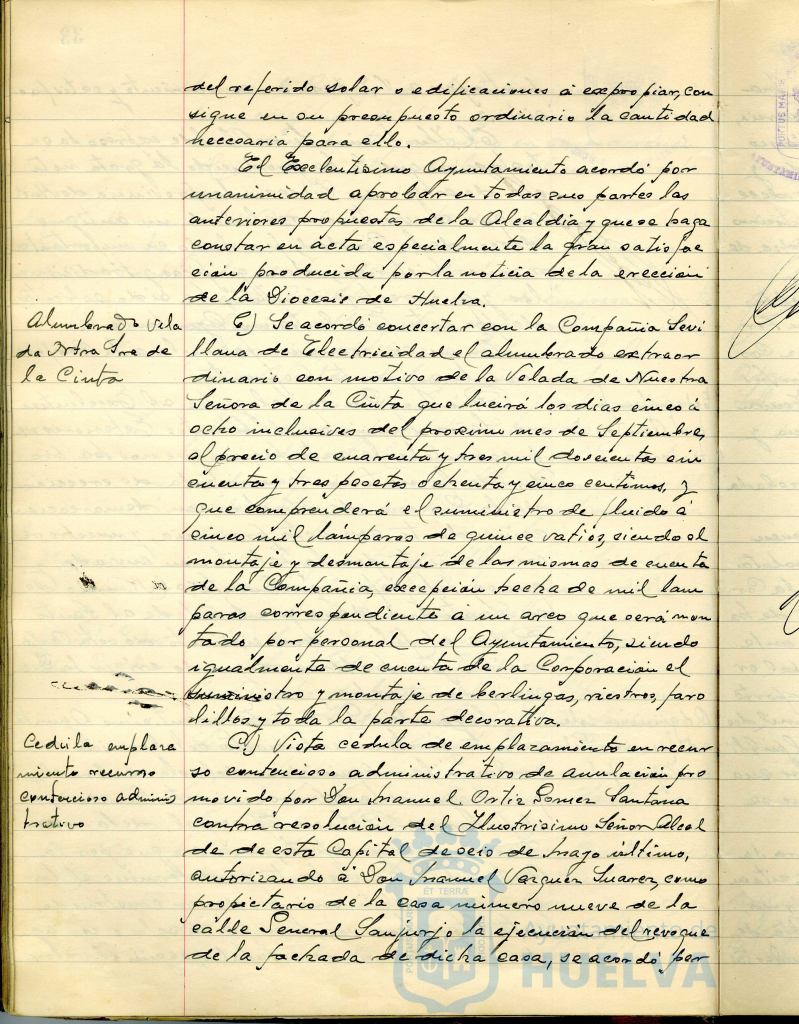 del referido solar o edificaciones á expropiar, con
signe en su presupuesto ordinario la cantidad
necesaria para ello.
El Excelentísimo Ayuntamiento acordó por
unanimidad aprobar en todas sus partes las
anteriores propuestas de la Alcaldia y que se haga
constar en acta especialmente la gran satisfac
ción producida por la noticia de la erección
de la Diocesis de Huelva.
Alumbrado Vela
da Ntra Sra de
la Cinta
Se acordó concertar con la Compañia Sevi
llana de Electricidad el alumbrado extraor
dinario con motivo de la Velada de Nuestra
Señora de la Cinta que lucirá los dias cinco á
ocho inclusives del proximo mes de Septiembre,
al precio de cuarenta y tres mil doscientas cin
cuenta y tres pesetas ochenta y cinco centimos, y
que comprenderá el suministro de fluido á
cinco mil lámparas de quince vatios, siendo el
montaje y desmontaje de las mismas de cuenta
de la Compañia, excepción hecha de mil lam
paras correspondiente á un arco que será mon
tado por personal del Ayuntamiento, siendo
igualmente de cuenta de la Corporación el
suministro y montaje de berlingas, riestros, faro
lillos y toda la parte decorativa.
Cedula emplaza
miento recurso
contencioso adminis
trativo
C) Vista cédula de emplazamiento en recur
so contencioso administrativo de anulación pro
movido por Don Manuel Ortiz Gomez Santana
contra resolución del Ilustrisimo Señor Alcal
de de esta Capital de seis de Mayo último,
autorizando á Don Manuel Vazquez Suarez, como
propietario de la casa número nueve de la
calle General Sanjurjo la ejecución del revoque
de la fachada de dicha casa, se acordó por
ET TERRÆ
Ayuntamiento de
HUELVA